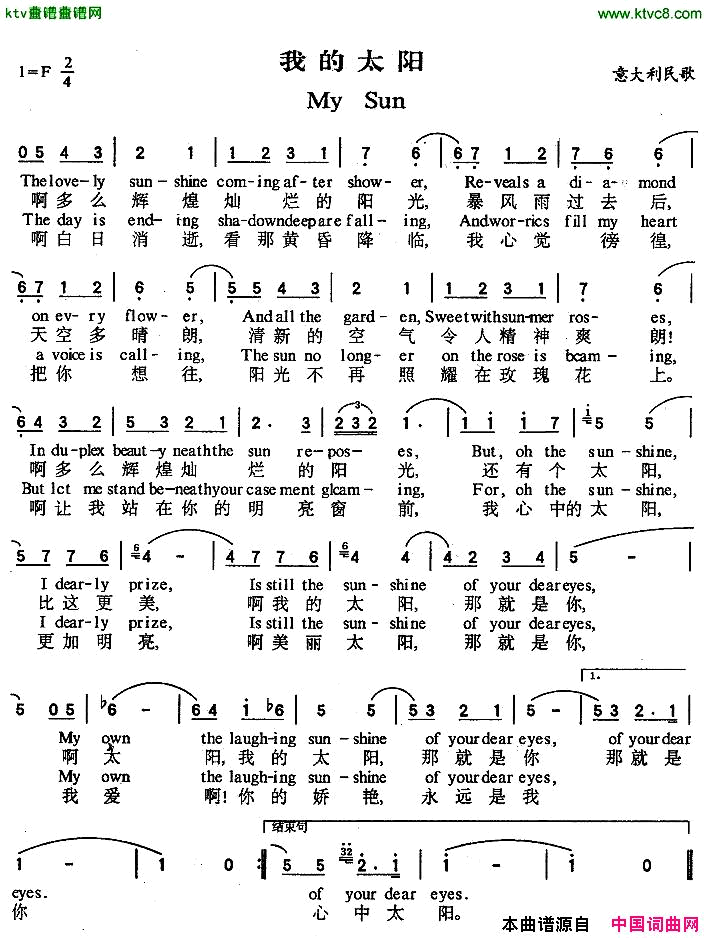 ktv曲谱曲谱网
www.ktvc8.com
我的太阳
1=F 2/4
意大利民歌
My Sun
0 5 4 3 | 2 1 | 1 2 3 1 | 7 6 | 6 7 1 2 | 7 6 | 6
The love-ly sun-shine coming af-ter show-er, Re-veals a di-a-mond
啊多么辉煌灿烂的阳光,暴风雨过去后,
The day is end-ing sha-dow deep are fall-ing, And worries fill my heart
啊白日消逝,看那黄昏降临,我心觉彷徨,
6 7 1 2 | 6 5 | 5 5 4 3 | 2 1 | 1 2 3 1 | 7 6
on ev-ry flow-er, And all the gard-en, Sweet with sunmer ros-es,
天空多晴朗,清新的空气令人精神爽朗!
a voice is call-ing, The sun no long-er on the rose is beam-ing,
把你想往,阳光不再照耀在玫瑰花上。
6 4 3 2 | 5 3 2 1 | 2 · 3 | 2 3 2 1 · | 1 i i 7 | i 5 5
In du-plex beaut-y neath the sun re-pos-es, But, oh the sun-shine,
啊多么辉煌灿烂的阳光,还有个太阳,
But let me stand be-neath your case ment gleam-ing, For, oh the sun-shine,
啊让我站在你的明亮窗前,我心中的太阳,
5 7 7 6 | 6 4 - | 4 7 7 6 | 6 4 4 | 4 2 3 4 | 5 -
I dear-ly prize, Is still the sun-shine of your dear eyes,
比这更美,啊我的太阳,那就是你,
I dear-ly prize, Is still the sun-shine of your dear eyes,
更加明亮,啊美丽太阳,那就是你,
1.
5 0 5 | ♭6 - | 6 4 i ♭6 | 5 5 | 5 3 2 1 | 5 - | 5 3 2 · 1
My own the laugh-ing sun-shine of your dear eyes, of your dear
啊太阳,我的太阳,那就是你那就是
My own the laugh-ing sun-shine of your dear eyes,
我爱啊!你的娇艳,永远是我
结束句
1 - | 1 0 :| 5 5 32 2 · 1 | 1 - | 1 0
eyes. of your dear eyes.
你心中太阳。
本曲谱源自 中国词曲网